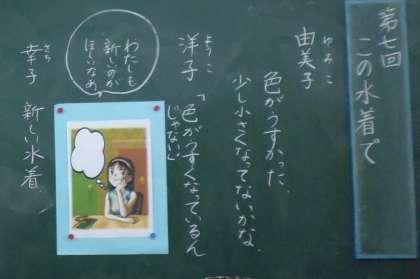 第七回
この水着で
ゆみこ
由美子
色がうすかった、
少し小さくなってないかな。
ようこ
洋子「色がうすくなっているん
じゃないど
わたしも
新しいのが
ほしいなあ
さち
幸子 新しい水着